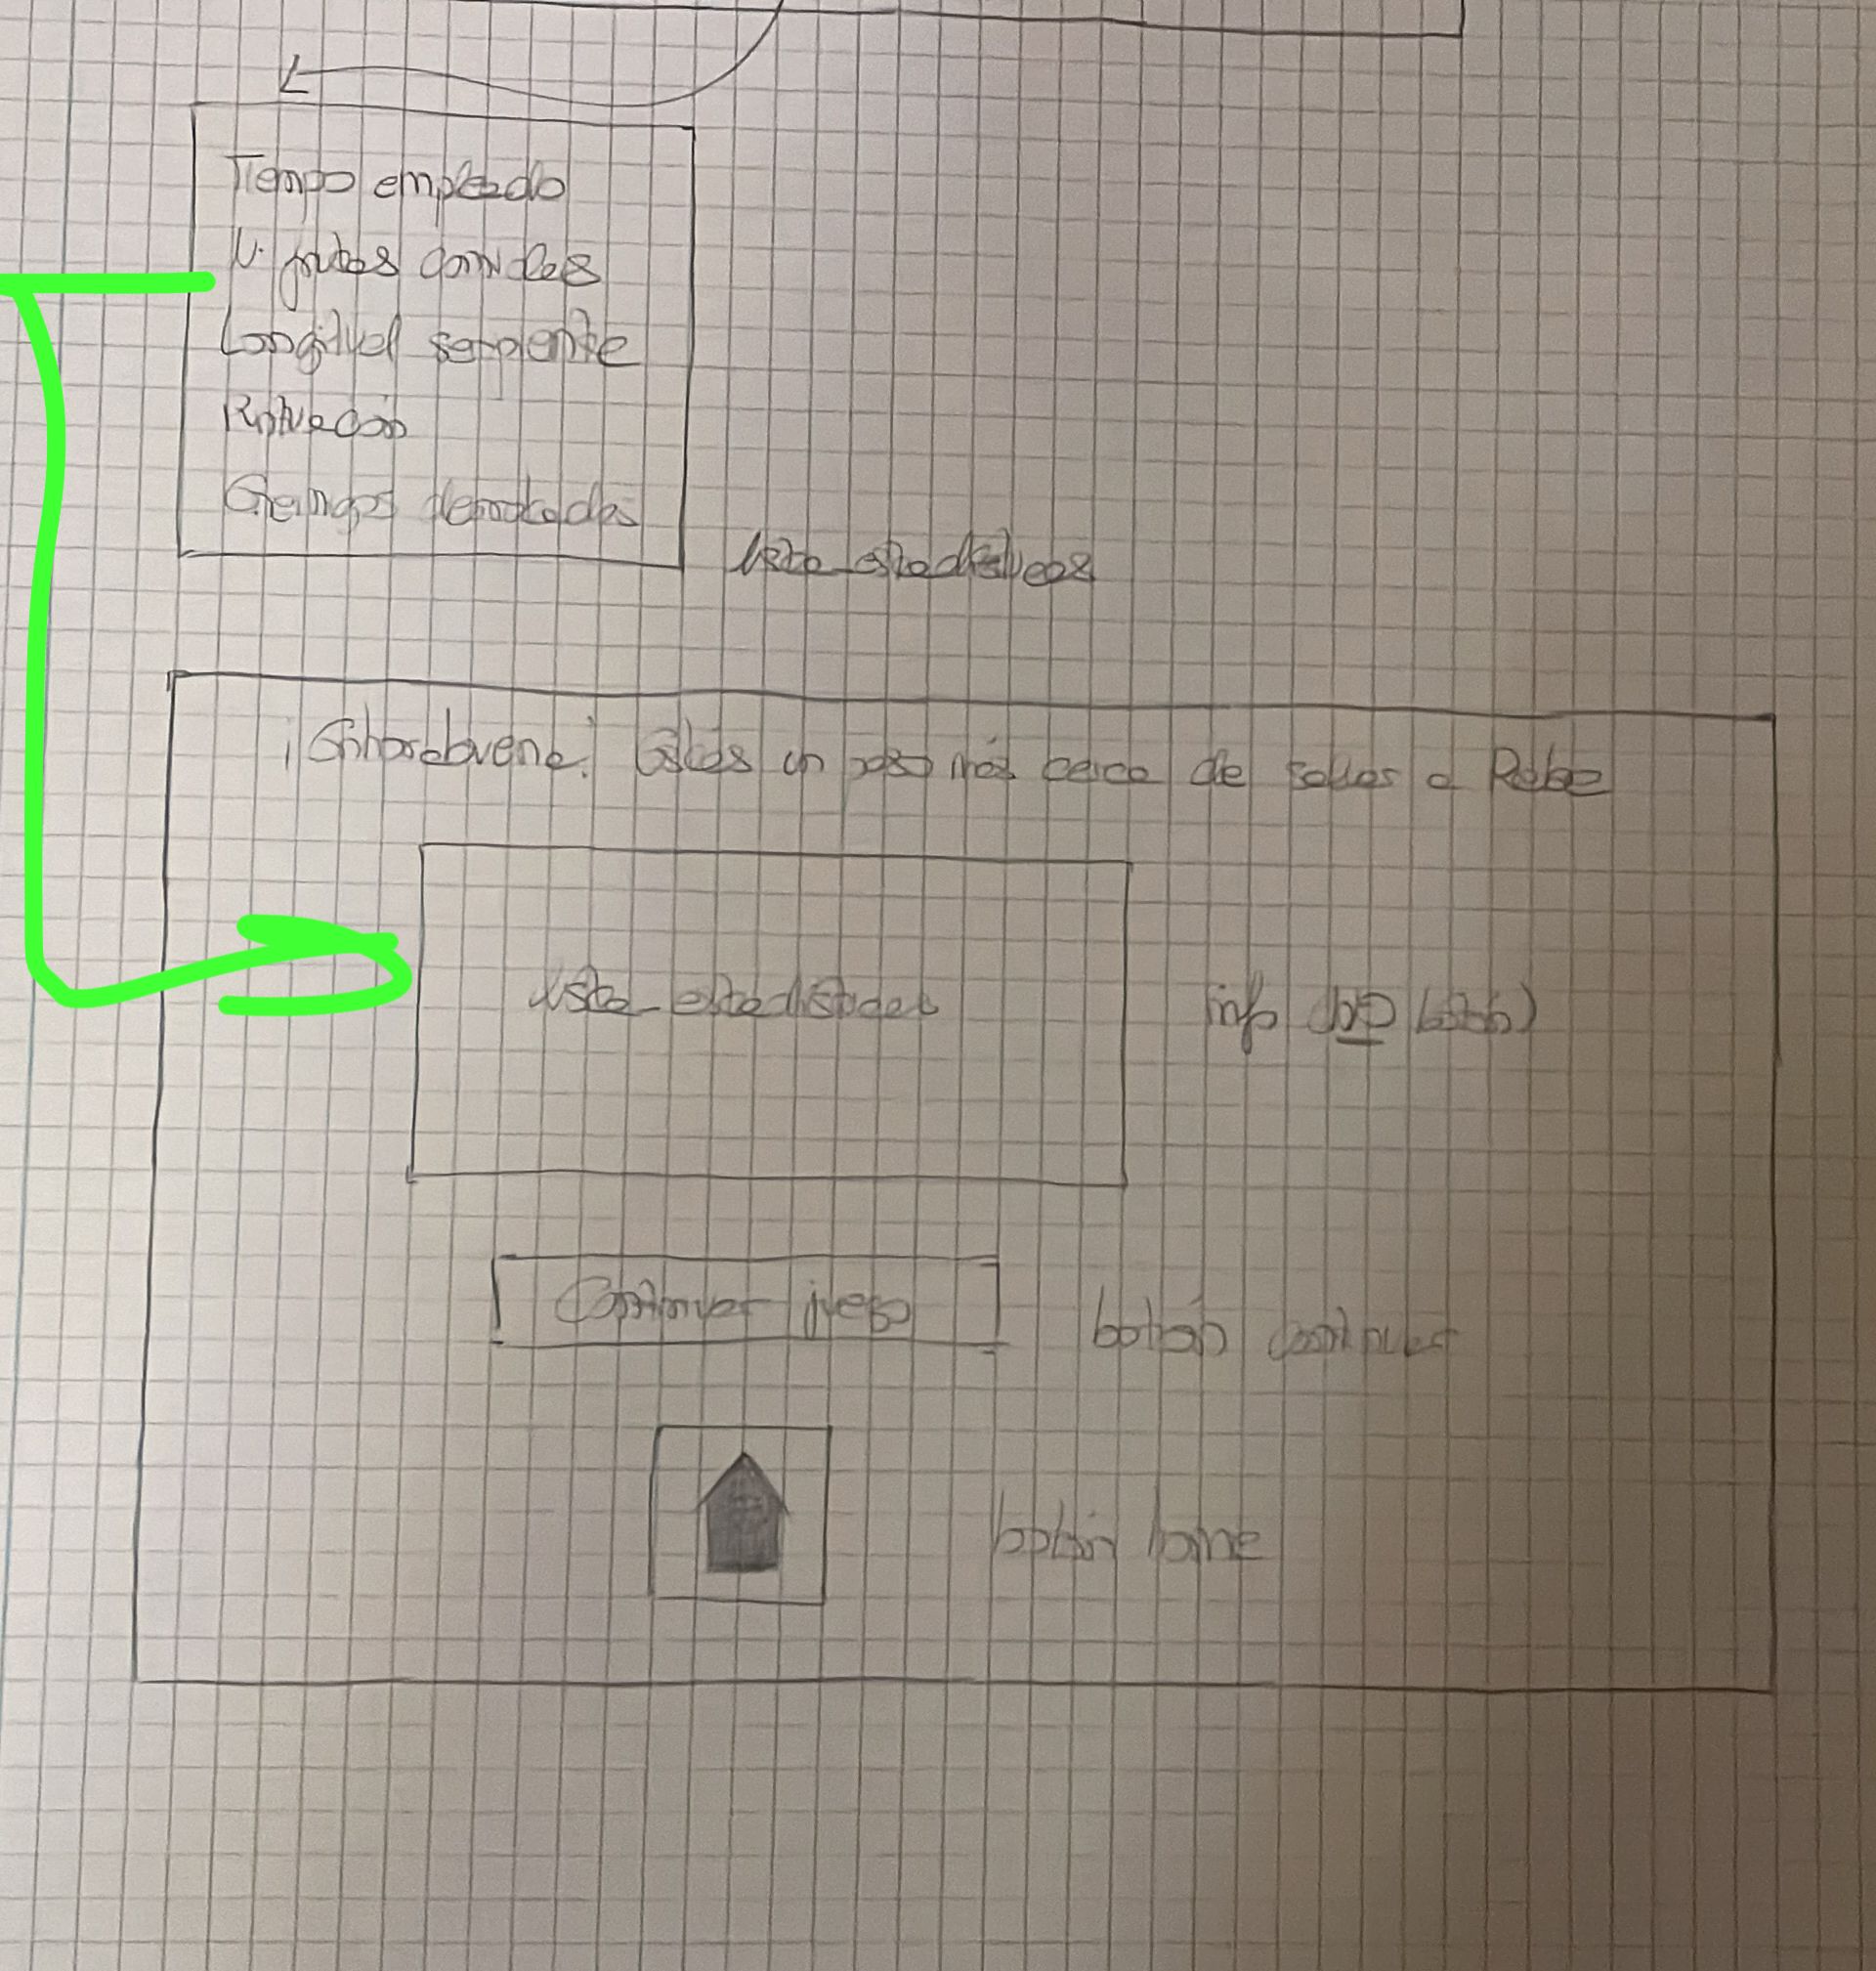 Tiempo empleado
N. frutas comidas
Longitud serpiente
Puntuación
derrotados
lista_estadísticas
¡Enhorabuena! Estás un paso más cerca de salvar a Rebe
lista_estadísticas
info (no botón)
Continuar juego
botón continuar
botón home